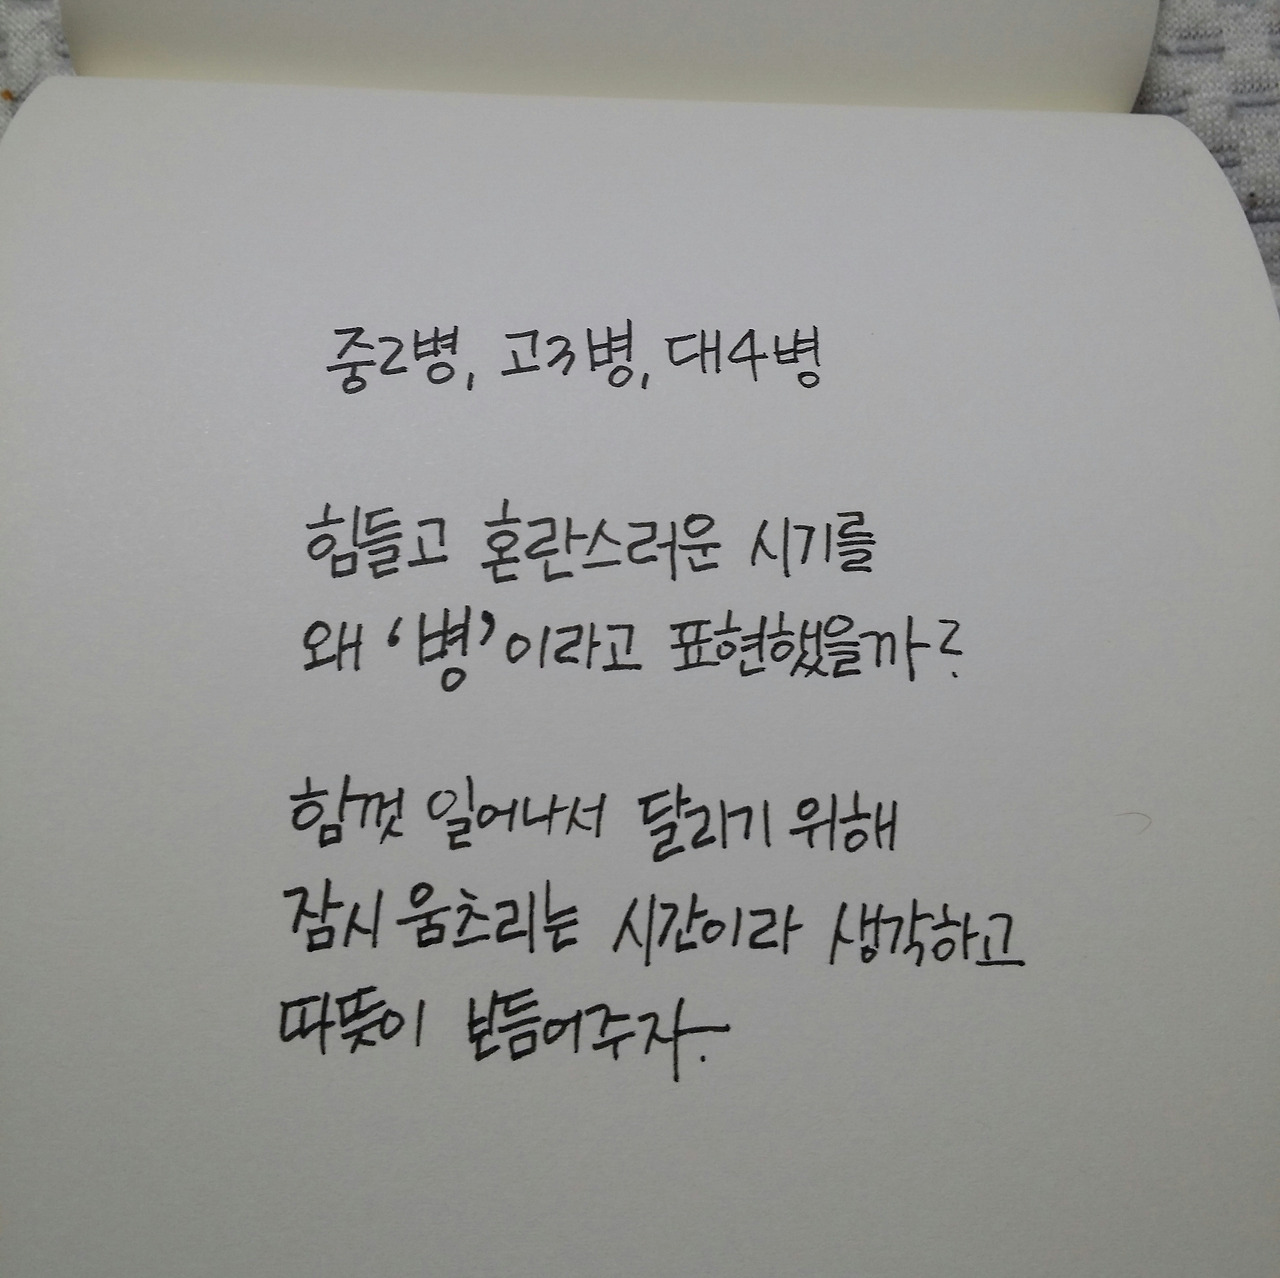 중2병, 고3병, 대4병
힘들고 혼란스러운 시기를
왜 ‘병’이라고 표현했을까?
힘껏 일어나서 달리기 위해
잠시 움츠리는 시간이라 생각하고
따뜻이 보듬어주자.